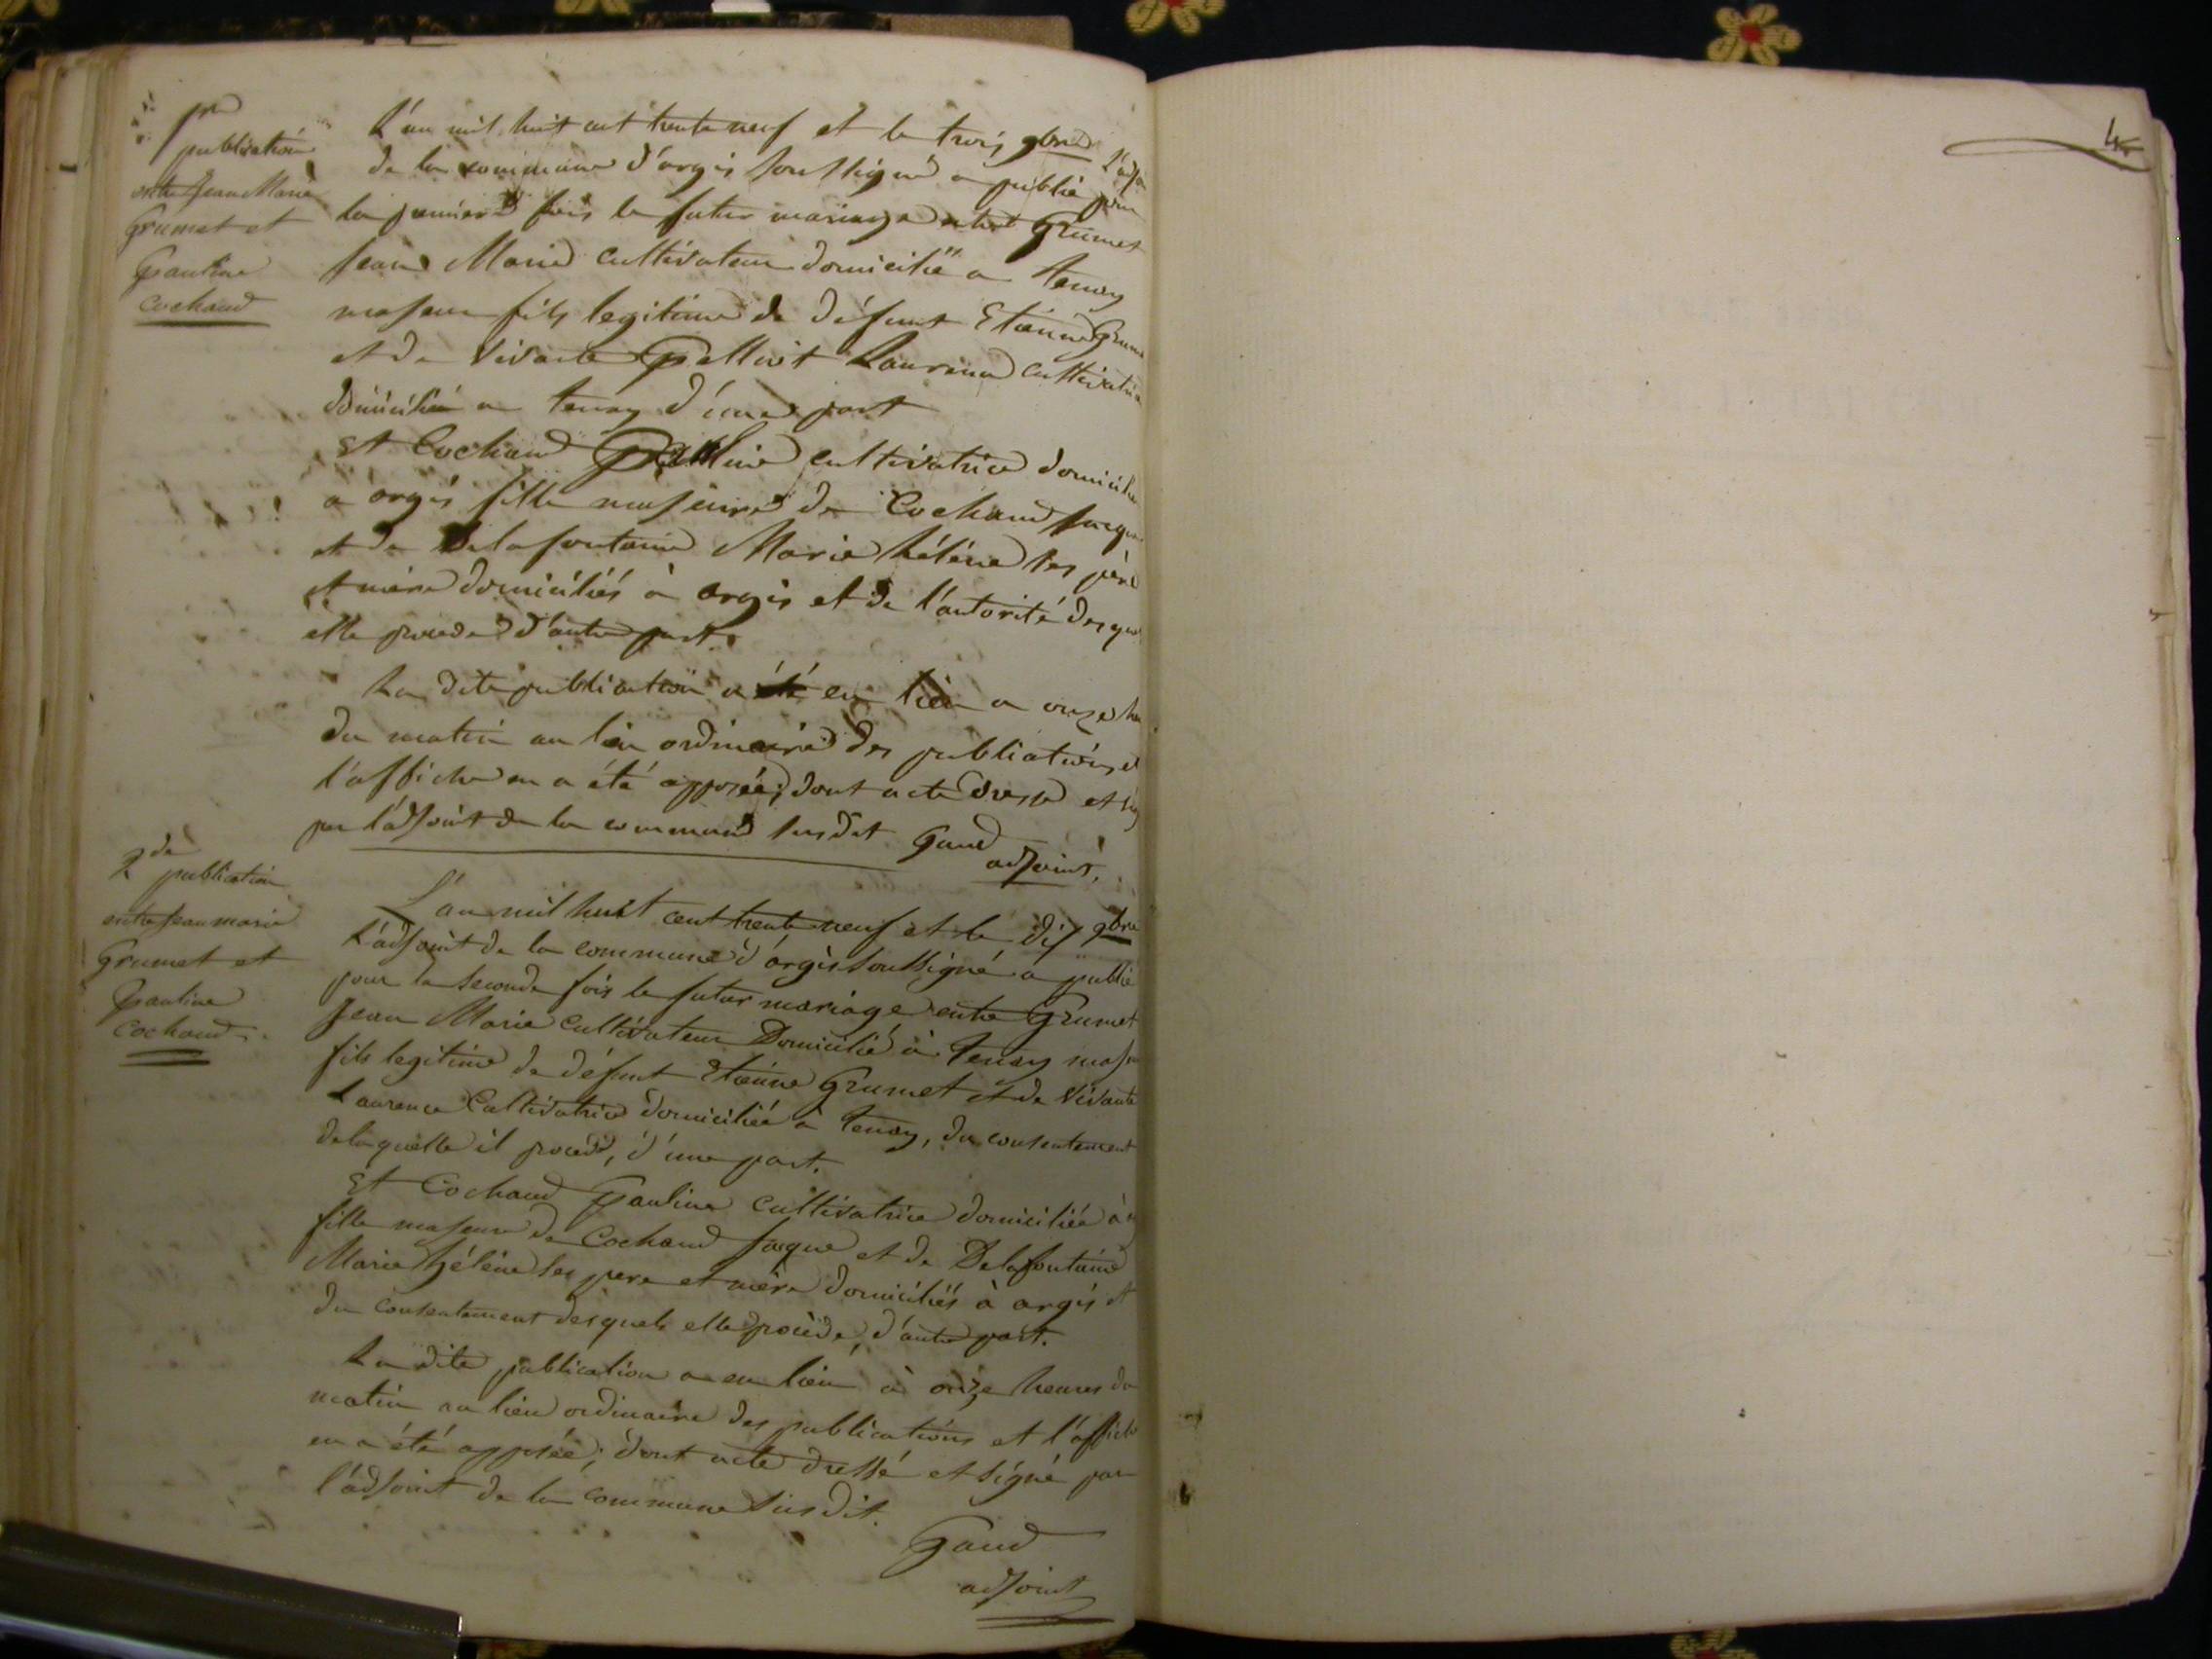 1re
publication
entre Jean Marie
Grumet et
Pauline
Cochand
L'an mil huit cent trente neuf et le trois 9bre L'adjoin
de la commune d'argis soussigné a publié pour
la premiere fois le futur mariage entre Grumet
Jean Marie cultivateur domicilié a tenay
majeur fils legitime de défunt Etienne Grume
et de vivante Pellisit Laurence cultivatric
domiciliée a tenay d'une part
Et Cochand Pauline cultivatrice domicilié
a argis fille majeure de Cochand Jacque
et de Delafontaine Marie hélène ses père
et mère domiciliés à argis et de l'autorité desquel
elle procede d'autre part.
La dite publication a été eu lieu a onze heu
du matin au lieu ordinaire des publications, et
l'affiche en a été apposée; dont acte dressé et sig
par l'adjoint de la commune susdit Gaud
adjoint,
2de
publication
entre Jean marie
Grumet et
Pauline
Cochand
L'an mil huit cent trente neuf et le dix 9bre
L'adjoint de la commune d'argis soussigné a publié
pour la seconde fois le futur mariage entre Grumet
Jean Marie cultivateur Domicilié à tenay majeur
fils legitime de défunt Etienne Grumet et de vivante
Laurence Cultivatrice domiciliée à tenay, du consentement
delaquelle il procede, d'une part.
Et Cochand Pauline cultivatrice domiciliée à
fille majeure de Cochand Jacque et de Delafontaine
Marie hélène ses pere et mère domiciliés à argis et
du consentement desquels elle procède, d'autre part.
La dite publication a eu lieu à onze heures du
matin au lieu ordinaire des publications et l'affiche
en a été apposée; dont acte dressé et signé par
l'adjoint de la commune susdit.
Gaud
adjoint
4